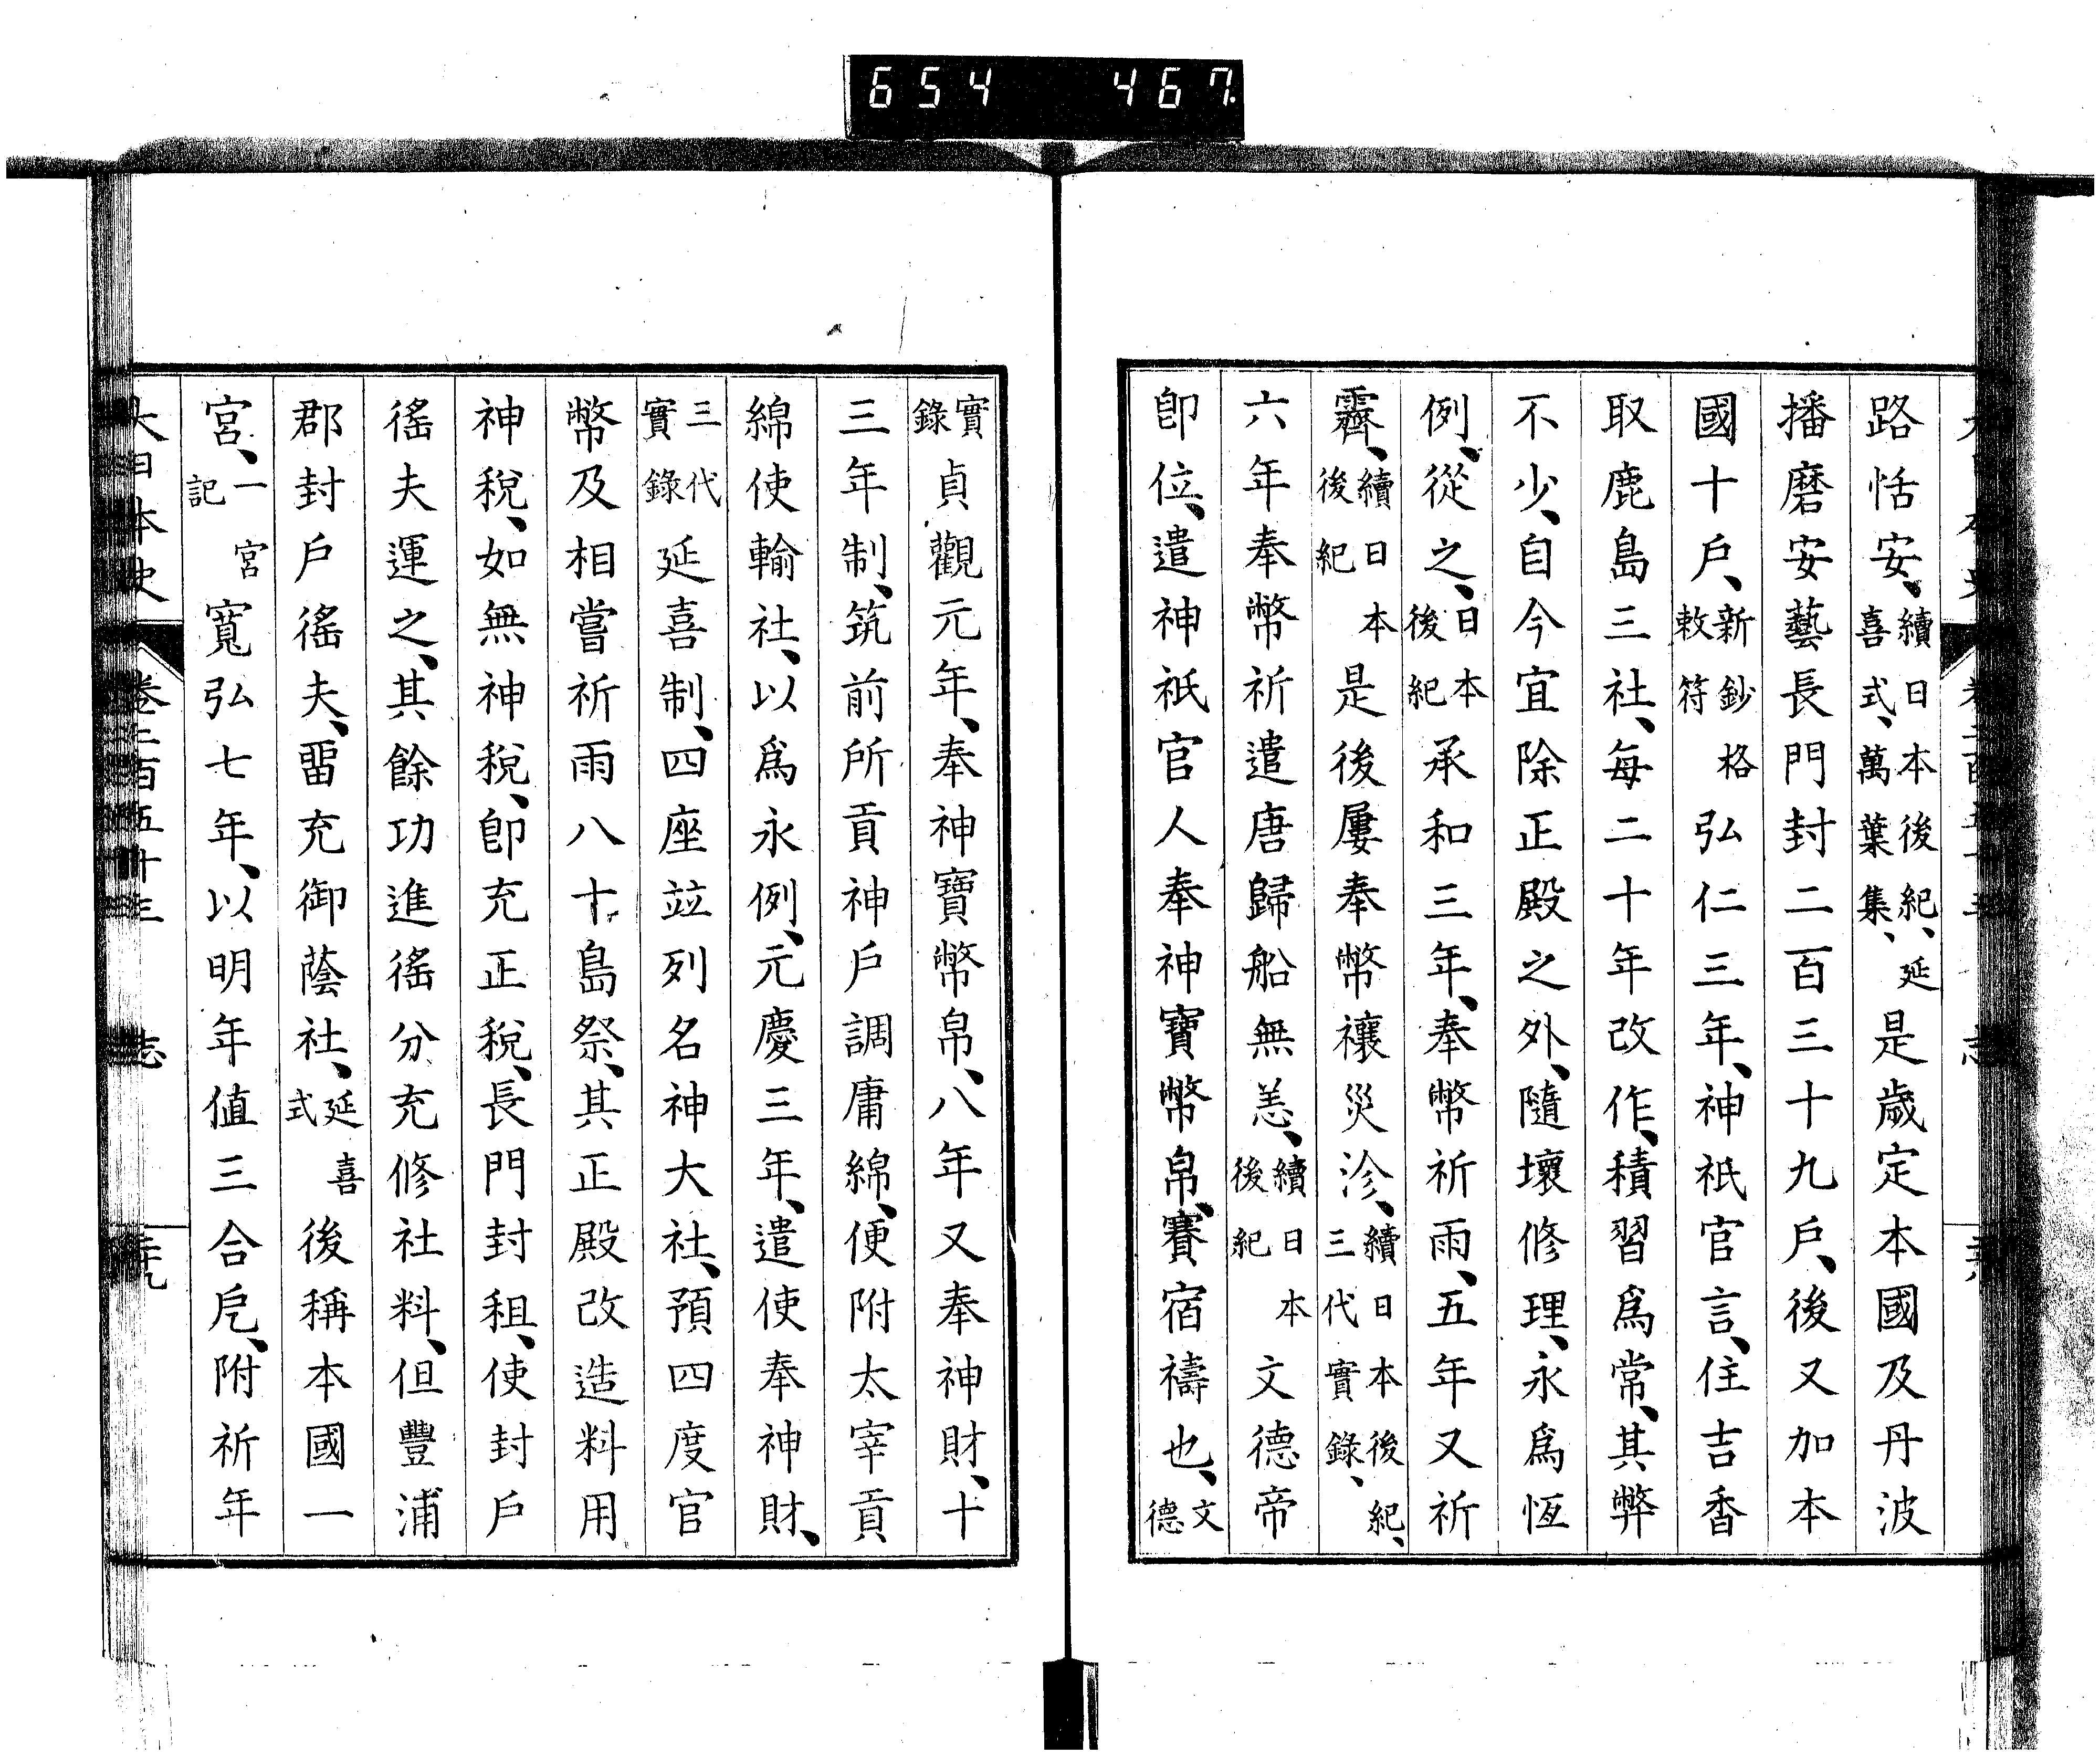 654 467.
路恬安、續日本後紀、延喜式、萬葉集、是歲定本國及丹波
播磨安藝長門封二百三十九戶、後又加本
國十戶、新鈔格敕符弘仁三年、神祇官言、住吉香
取鹿島三社、每二十年改作、積習爲常、其弊
不少、自今宜除正殿之外、隨壞修理、永爲恆
例、從之、日本後紀承和三年、奉幣祈雨、五年又祈
霽、續日本後紀是後屢奉幣禳災沴、續日本後紀、三代實錄、
六年奉幣祈遣唐歸船無恙、續日本後紀文德帝
卽位、遣神祇官人奉神寶幣帛、賽宿禱也、文德
實錄貞觀元年、奉神寶幣帛、八年又奉神財、十
三年制、筑前所貢神戶調庸綿、便附太宰貢
綿使輸社、以爲永例、元慶三年、遣使奉神財、
三代實錄延喜制、四座竝列名神大社、預四度官
幣及相嘗祈雨八十島祭、其正殿改造料用
神稅、如無神稅、卽充正稅、長門封租、使封戶
徭夫運之、其餘功進徭分充修社料、但豐浦
郡封戶徭夫、畱充御蔭社、延喜式後稱本國一
宮、一宮記寬弘七年、以明年値三合戹、附祈年
大日本史 卷二百五十三 志